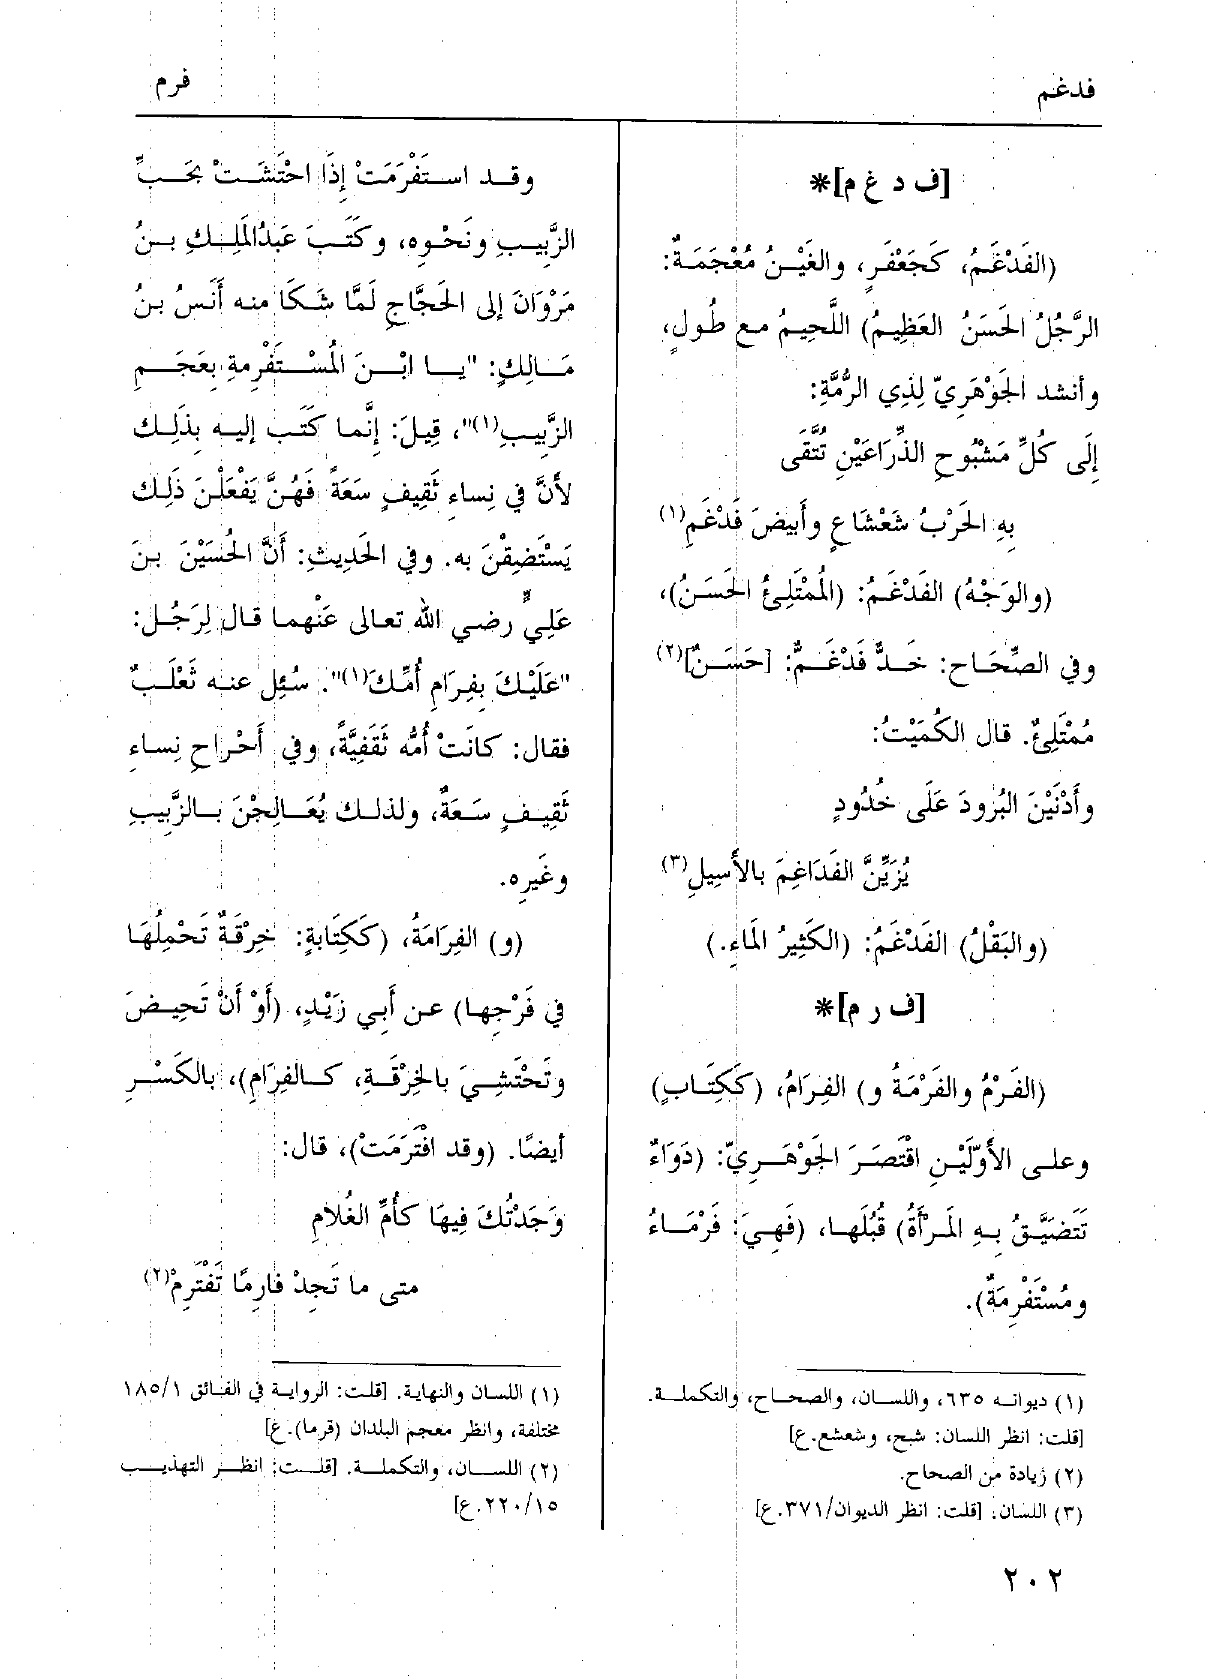 فدغم
فرم
[ف د غ م]*
(الفَدْغَمُ، كَجَعْفَرٍ، والغَيْنُ مُعْجَمَةٌ:
الرَّجُلُ الحَسَنُ العَظِيمُ) اللَّحِيمُ مع طُولٍ،
وأنشد الجَوْهَرِيّ لِذِي الرُّمَّةِ:
إِلَى كُلِّ مَشْبُوحِ الذِّرَاعَيْنِ تُتَّقَى
بِهِ الحَرْبُ شَعْشَاعٍ وأَبيضَ فَدْغَمِ(١)
(والوَجْهُ) الفَدْغَمُ: (المُمْتَلِئُ الحَسَنُ)،
وفي الصِّحَاح: خَدٌّ فَدْغَمٌ: [حَسَنٌ](٢)
مُمْتَلِئٌ. قال الكُمَيْتُ:
وأَدْنَيْنَ البُرودَ عَلَى خدُودٍ
يُزَيِّنَّ الفَدَاغِمَ بالأَسِيلِ(٣)
(والبَقْلُ) الفَدْغَمُ: (الكَثِيرُ المَاءِ.)
[ف ر م]*
(الفَرْمُ والفَرْمَةُ و) الفِرَامُ، (كَكِتَابٍ)
وعلى الأَوّلَيْنِ اقْتَصَرَ الجَوْهَرِيّ: (دَوَاءٌ
تَتَضَيَّقُ بِهِ المَرْأَةُ) قُبُلَها، (فَهِيَ: فَرْمَاءُ
ومُسْتَفْرِمَةٌ).
(١) ديوانه ٦٣٥، واللسان، والصحاح، والتكملة.
[قلت: انظر اللسان: شبح، وشعشع.ع]
(٢) زيادة من الصحاح.
(٣) اللسان. [قلت: انظر الديوان/٣٧١.ع]
وقد استفْرَمَتْ إِذَا احْتَشَتْ بحَبِّ
الزَّبِيبِ ونَحْوِه، وكَتَبَ عَبدُالمَلِكِ بنُ
مَرْوَانَ إلى الحَجَّاجِ لَمَّا شَكَا منه أَنَسُ بنُ
مَالِكٍ: "يا ابْنَ المُسْتَفْرِمةِ بِعَجَمِ
الزَّبِيبِ(١)"، قِيلَ: إِنَّما كَتَب إليه بذَلِك
لأنَّ في نِساءِ ثَقِيفٍ سَعَةً فَهُنَّ يَفْعَلْنَ ذَلِك
يَسْتَضِقْنَ به. وفي الحَدِيثِ: أَنَّ الحُسَيْنَ بنَ
عَلِيٍّ رضي الله تعالى عَنْهما قال لِرَجُل:
"عَلَيْكَ بِفِرَامِ أُمِّكَ(١)". سُئِل عنه ثَعْلَبٌ
فقال: كانَتْ أُمُّه ثَقَفِيَّةً، وفي أَحْراحِ نِساءِ
ثَقِيفٍ سَعَةٌ، ولذلك يُعَالِجْنَ بالزَّبِيبِ
وغَيرِه.
(و) الفِرَامَةُ، (كَكِتَابةٍ: خِرْقَةٌ تَحْمِلُهَا
في فَرْجِها) عن أَبي زَيْدٍ، (أَوْ أَنْ تَحِيضَ
وتَحْتَشِيَ بالخِرْقَةِ، كالفِرَامِ)، بالكَسْرِ
أيضًا. (وقد افْتَرَمَتْ)، قال:
وَجَدْتُكَ فِيهَا كأُمِّ الغُلامِ
متى ما تَجِدْ فارِمًا تَفْتَرِمْ(٢)
(١) اللسان والنهاية. [قلت: الرواية في الفائق ١٨٥/١
مختلفة، وانظر معجم البلدان (قرما).ع]
(٢) اللسان، والتكملة. [قلت: انظر التهذيب
٢٢٠/١٥.ع]
٢٠٢